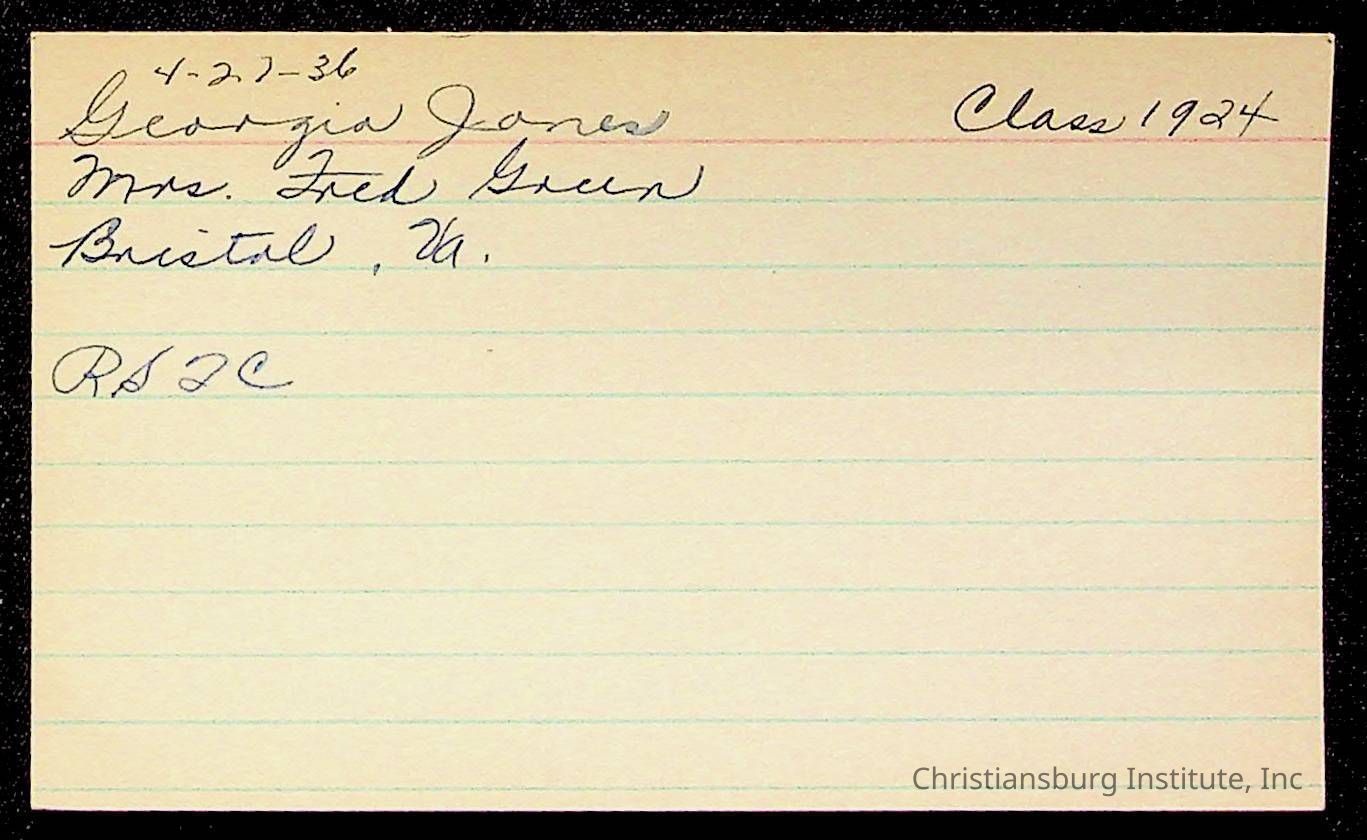 4-27-36
Georgia Jones Class 1924
Mrs. Fred Green
Bristol, Va.
Christiansburg Institute, Inc